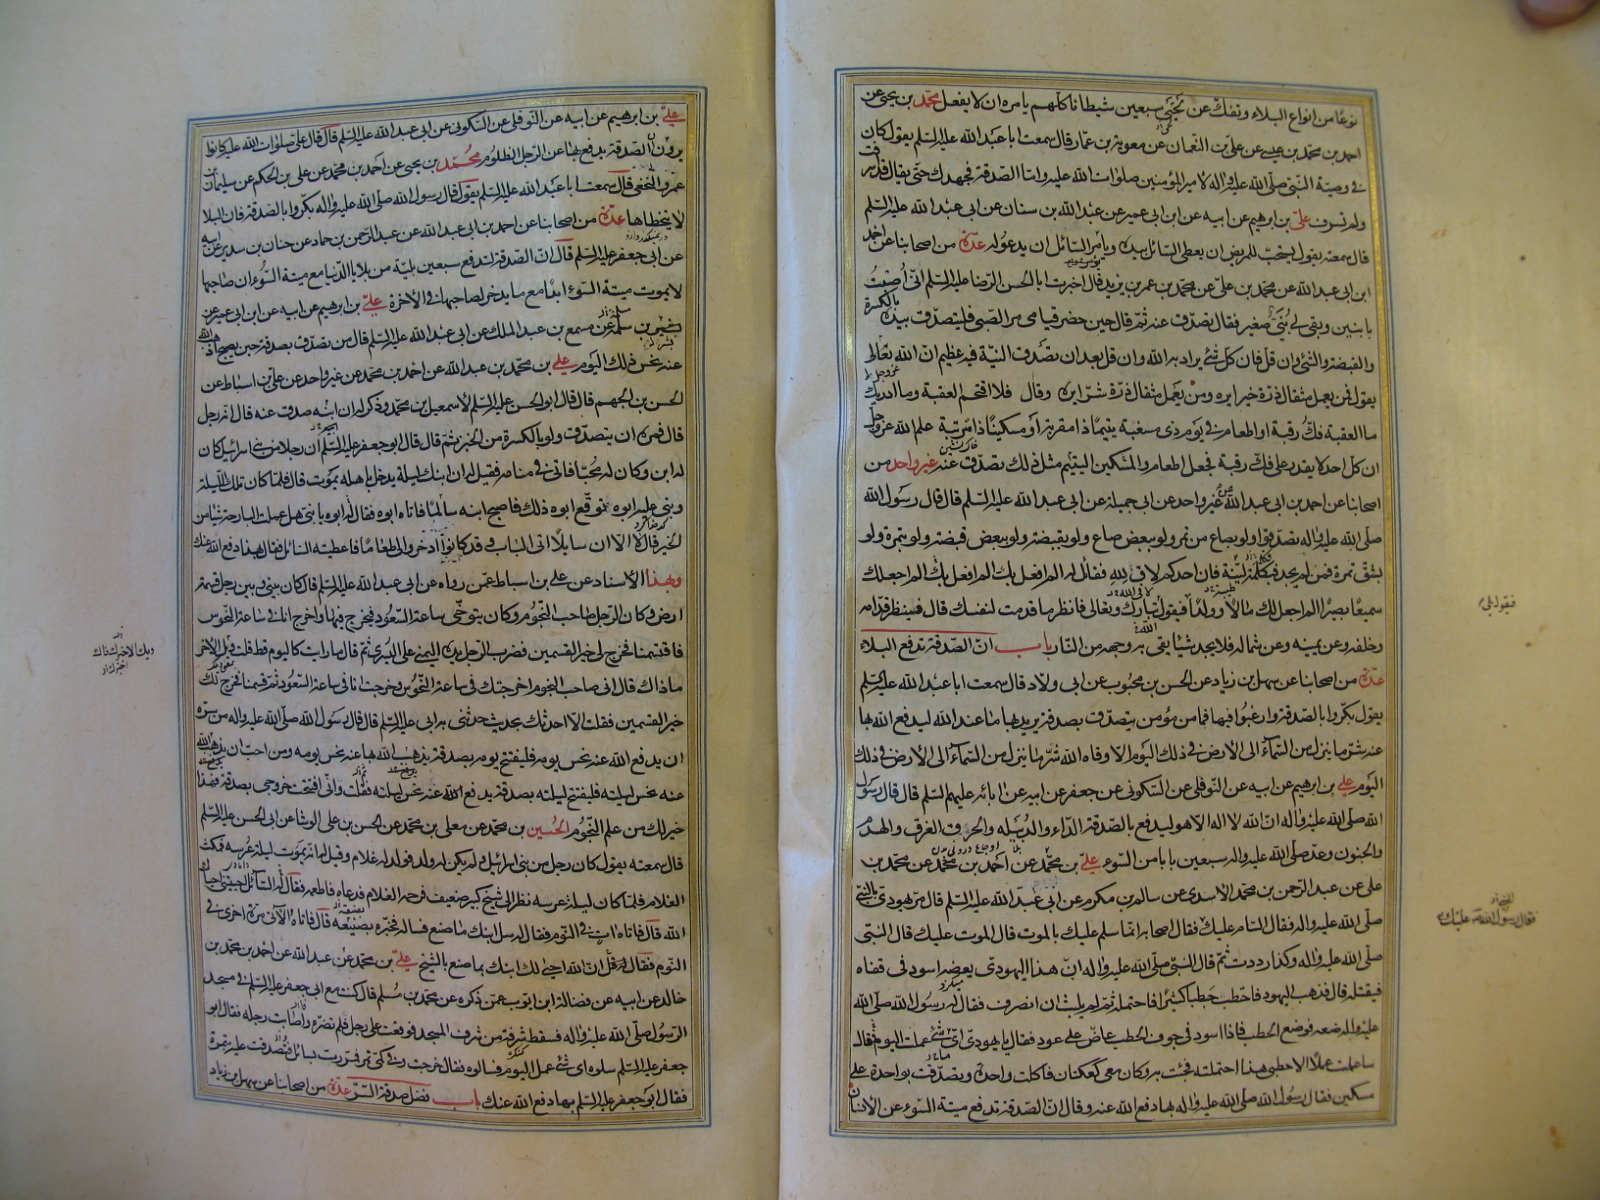 نوعا من انواع البلاء وتفك عن لحيي سبعين شيطانا كلهم يامره ان لا يفعل محمد بن يحيى عن
احمد بن محمد بن عيسى عن علي بن النعمان عن معوية بن عمار قال سمعت ابا عبد الله عليه السلم يقول كان
في وصية النبي صلى الله عليه واله لامير المؤمنين صلوات الله عليه واما الصدقة فجهدك حتى يقال قد اسرفت
ولم تسرف علي بن ابرهيم عن ابيه عن ابن ابي عمير عن عبد الله بن سنان عن ابي عبد الله عليه السلم
قال سمعته يقول يستحب للمريض ان يعطي السائل بيده ويامر السائل ان يدعو له عدة من اصحابنا عن احمد
ابن ابي عبد الله عن محمد بن علي عن محمد بن عمر بن يزيد قال اخبرت ابا الحسن الرضا عليه السلم اني اصبت
بابنين وبقي لي بني صغير فقال تصدق عنه ثم قال حين حضر قيامي مر الصبي فليتصدق بيده بالكسرة
والقبضة والشئ وان قل فان كل شئ يراد به الله وان قل بعد ان تصدق النية فيه عظيم ان الله تعالى
يقول فمن يعمل مثقال ذرة خيرا يره ومن يعمل مثقال ذرة شرا يره وقال فلا اقتحم العقبة وما ادريك
ما العقبة فك رقبة او اطعام في يوم ذي مسغبة يتيما ذا مقربة او مسكينا ذا متربة علم الله عز وجل
ان كل احد لا يقدر على فك رقبة فجعل اطعام المسكين اليتيم مثل ذلك تصدق عنه غير واحد من
اصحابنا عن احمد بن ابي عبد الله عن غير واحد عن ابي جميلة عن ابي عبد الله عليه السلم قال قال رسول الله
صلى الله عليه واله تصدقوا ولو بصاع من تمر ولو ببعض صاع ولو بقبضة ولو ببعض قبضة ولو بتمرة ولو
بشق تمرة فمن لم يجد فبكلمة لينة فان احدكم لاق لله فقائل له الم افعل بك الم افعل بك الم اجعلك
سميعا بصيرا الم اجعل لك مالا وولدا فيقول الله تبارك وتعالى فانظر ما قدمت لنفسك قال فينظر قدامه
وخلفه وعن يمينه وعن شماله فلا يجد شيئا يقي به وجهه من النار باب ان الصدقة تدفع البلاء
عدة من اصحابنا عن سهل بن زياد عن الحسن بن محبوب عن ابي ولاد قال سمعت ابا عبد الله عليه السلم
يقول بكروا بالصدقة وارغبوا فيها فما من مؤمن يتصدق بصدقة يريد بها ما عند الله ليدفع الله بها
عنه شر ما ينزل من السماء الى الارض في ذلك اليوم الا وقاه الله شر ما ينزل من السماء الى الارض في ذلك
اليوم علي بن ابرهيم عن ابيه عن النوفلي عن السكوني عن جعفر عن ابيه عن ابائه عليهم السلم قال قال رسول
الله صلى الله عليه واله ان الله لا اله الا هو ليدفع بالصدقة الداء والدبيلة والحرق والغرق والهدم
والجنون وعد صلى الله عليه واله سبعين بابا من السوء علي بن محمد عن احمد بن محمد عن محمد بن
علي عن عبد الرحمن بن محمد الاسدي عن سالم بن مكرم عن ابي عبد الله عليه السلم قال مر يهودي بالنبي
صلى الله عليه واله فقال السام عليك فقال اصحابه انما سلم عليك بالموت قال الموت عليك قال النبي
صلى الله عليه واله وكذا رددت ثم قال النبي صلى الله عليه واله ان هذا اليهودي يعضه اسود في قفاه
فيقتله قال فذهب اليهود فاحتطب حطبا كثيرا فاحتمله ثم لم يلبث ان انصرف فقال له رسول الله صلى الله
عليه واله ضعه فوضع الحطب فاذا اسود في جوف الحطب عاض على عود فقال يا يهودي اي شئ عملت اليوم فقال
ما عملت عملا الا حطبي هذا احتملته فجئت به وكان معي كعكتان فاكلت واحدة وتصدقت بواحدة على
مسكين فقال رسول الله صلى الله عليه واله بها دفع الله عنه وقال ان الصدقة تدفع ميتة السوء عن الانسان
فيقول بلى
فقال رسول الله ص عليك
علي بن ابرهيم عن ابيه عن النوفلي عن السكوني عن ابي عبد الله عليه السلم قال قال علي صلوات الله عليه كانوا
يرون ان الصدقة يدفع بها عن الرجل الظلوم محمد بن يحيى عن احمد بن محمد عن علي بن الحكم عن سليمان بن
عمرو النخعي قال سمعت ابا عبد الله عليه السلم يقول قال رسول الله صلى الله عليه واله بكروا بالصدقة فان البلا
لا يتخطاها عدة من اصحابنا عن احمد بن ابي عبد الله عن عبد الرحمن بن حماد عن حنان بن سدير عن ابيه
عن ابي جعفر عليه السلم قال ان الصدقة لتدفع سبعين بلية من بلايا الدنيا مع ميتة السوء ان صاحبها
لا يموت ميتة السوء ابدا مع ما يدخر لصاحبها في الاخرة علي بن ابرهيم عن ابيه عن ابن ابي عمير عن
بشير بن سلمة عن مسمع بن عبد الملك عن ابي عبد الله عليه السلم قال من تصدق بصدقة حين يصبح اذهب الله
عنه نحس ذلك اليوم علي بن محمد بن عبد الله عن احمد بن محمد عن غير واحد عن علي بن اسباط عن
الحسن بن الجهم قال قال ابو الحسن عليه السلم لاسمعيل بن محمد وذكر له ان ابنه صدق عنه قال انه رجل
قال فمره ان يتصدق ولو بالكسرة من الخبز ثم قال قال ابو جعفر عليه السلم ان رجلا من بني اسرائيل كان
له ابن وكان له محبا فاتي في منامه فقيل له ان ابنك ليلة يدخل باهله يموت قال فلما كان تلك الليلة
وبنى عليه ابوه توقع ابوه ذلك فاصبح ابنه سالما فاتاه ابوه فقال له ابوه يا بني هل عملت البارحة شيئا من
الخير قال لا الا ان سايلا اتى الباب وقد كانوا ادخروا لي طعاما فاعطيته السائل فقال بهذا دفع الله عنك
وبهذا الاسناد عن علي بن اسباط عمن رواه عن ابي عبد الله عليه السلم قال كان بيني وبين رجل قسمة
ارض وكان الرجل صاحب النجوم وكان يتوخى ساعة السعود فيخرج فيها واخرج انا في ساعة النحوس
فاقتسمنا فخرج لي خير القسمين فضرب الرجل يده اليمنى على اليسرى ثم قال ما رايت كاليوم قط قلت ويل الاخر
ما ذاك قال اني صاحب النجوم اخرجتك في ساعة النحوس وخرجت انا في ساعة السعود ثم قسمنا فخرج لك
خير القسمين فقلت الا احدثك بحديث حدثني به ابي عليه السلم قال قال رسول الله صلى الله عليه واله من سره
ان يدفع الله عنه نحس يومه فليفتتح يومه بصدقة يذهب الله بها عنه نحس يومه ومن احب ان يذهب الله
عنه نحس ليلته فليفتتح ليلته بصدقة يدفع الله عنه نحس ليلته فقلت واني افتتحت خروجي بصدقة فهذا
خير لك من علم النجوم الحسين بن محمد عن معلى بن محمد عن الحسن بن علي الوشا عن ابي الحسن عليه السلم
قال سمعته يقول كان رجل من بني اسرائيل ولم يكن له ولد فولد له غلام وقيل له انه يموت ليلة عرسه فمكث
الغلام فلما كان ليلة عرسه نظر الى شيخ كبير ضعيف فرحمه الغلام فدعاه فاطعمه فقال له السائل احييتني احياك
الله قال فاتاه ات في النوم فقال له سل ابنك ما صنع فساله فخبره بصنيعه قال فاتاه الاتي مرة اخرى في
النوم فقال له ان الله احيى لك ابنك بما صنع بالشيخ علي بن محمد عن عبد الله عن احمد بن محمد بن
خالد عن ابيه عن فضالة ابن ايوب عمن ذكره عن محمد بن مسلم قال كنت مع ابي جعفر عليه السلم في مسجد
الرسول صلى الله عليه واله فسقط شرفة من شرف المسجد فوقعت على رجل فلم تضره واصابت رجله فقال ابو
جعفر عليه السلم سلوه اي شئ عمل اليوم فسالوه فقال خرجت وفي كمي تمر فمررت بسائل فتصدقت عليه بتمرة
فقال ابو جعفر عليه السلم بها دفع الله عنك باب فضل صدقة السر عدة من اصحابنا عن سهل بن زياد